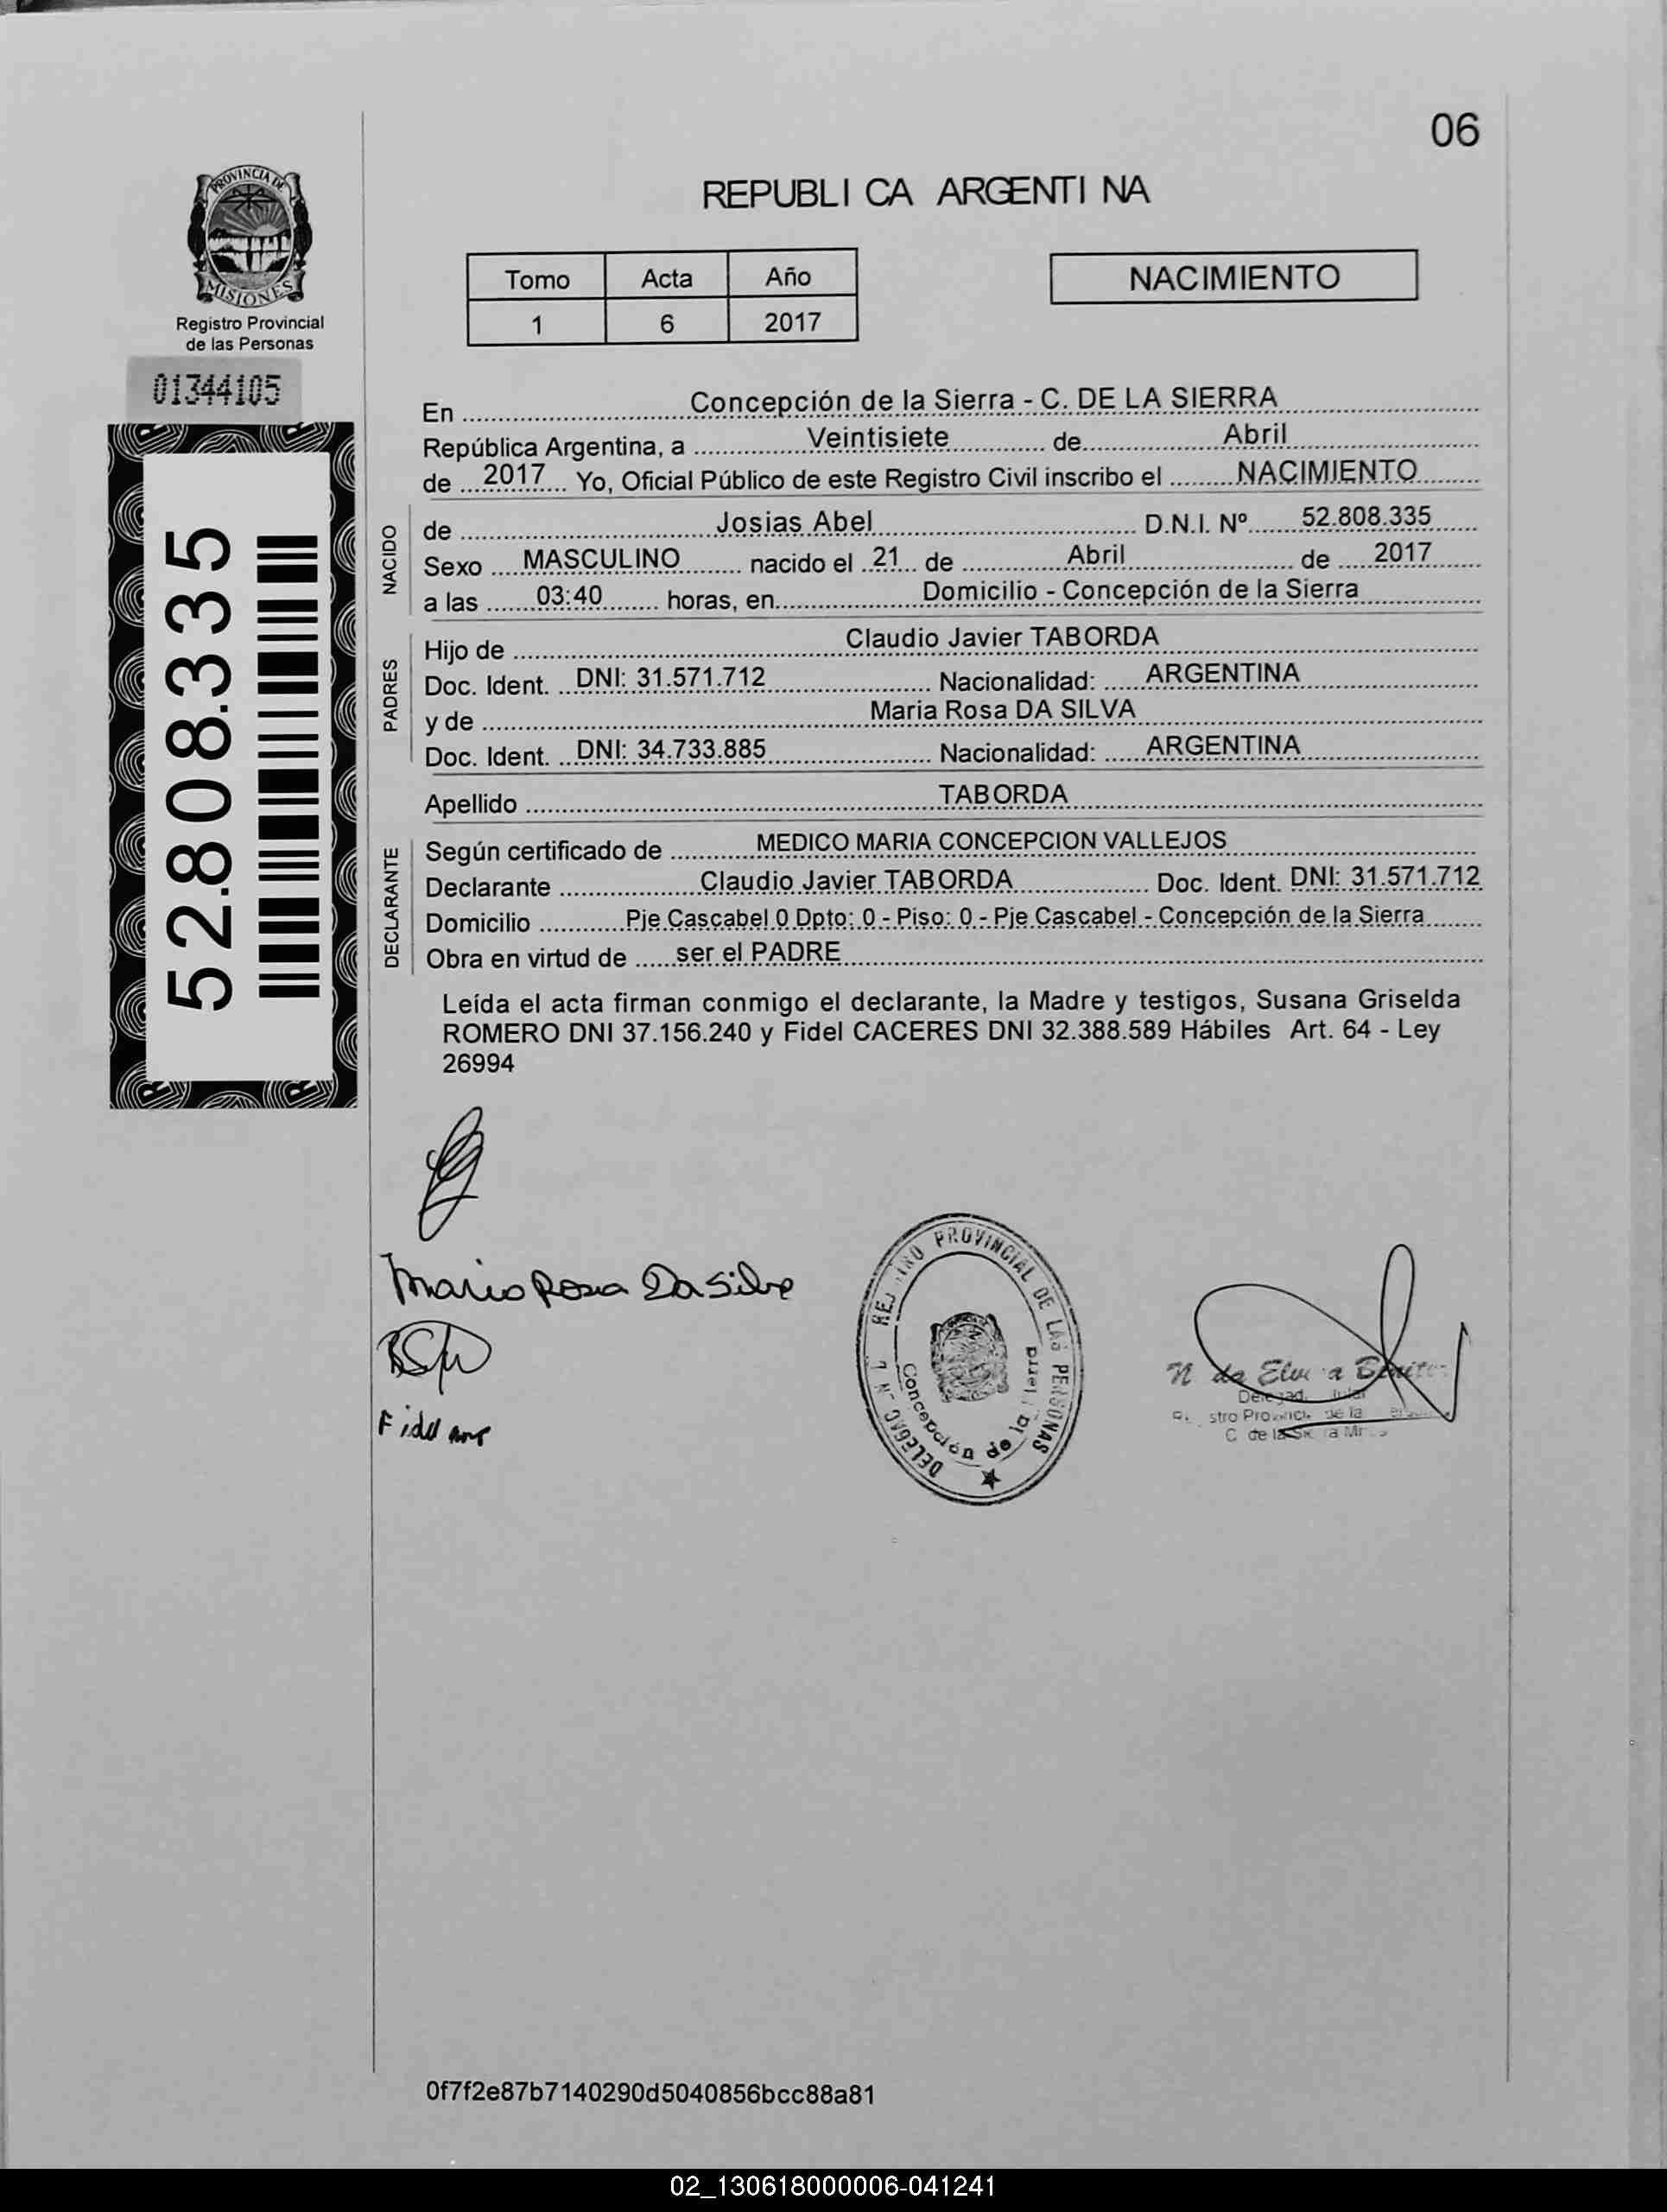 06
PROVINCIA DE
MISIONES
Registro Provincial
de las Personas
01344105
52.808.335
REPUBLICA ARGENTINA
Tomo Acta Año
1 6 2017
NACIMIENTO
En Concepción de la Sierra - C. DE LA SIERRA
República Argentina, a Veintisiete de Abril
de 2017 Yo, Oficial Público de este Registro Civil inscribo el NACIMIENTO
NACIDO
de Josias Abel D.N.I. Nº 52.808.335
Sexo MASCULINO nacido el 21 de Abril de 2017
a las 03:40 horas, en Domicilio - Concepción de la Sierra
PADRES
Hijo de Claudio Javier TABORDA
Doc. Ident. DNI: 31.571.712 Nacionalidad: ARGENTINA
y de Maria Rosa DA SILVA
Doc. Ident. DNI: 34.733.885 Nacionalidad: ARGENTINA
Apellido TABORDA
DECLARANTE
Según certificado de MEDICO MARIA CONCEPCION VALLEJOS
Declarante Claudio Javier TABORDA Doc. Ident. DNI: 31.571.712
Domicilio Pje Cascabel 0 Dpto: 0 - Piso: 0 - Pje Cascabel - Concepción de la Sierra
Obra en virtud de ser el PADRE
Leída el acta firman conmigo el declarante, la Madre y testigos, Susana Griselda
ROMERO DNI 37.156.240 y Fidel CACERES DNI 32.388.589 Hábiles Art. 64 - Ley
26994
Maria Rosa Da Silva
PROVINCIAL DE LAS PERSONAS
Concepción de la
Fidel
0f7f2e87b7140290d5040856bcc88a81
02_130618000006-041241